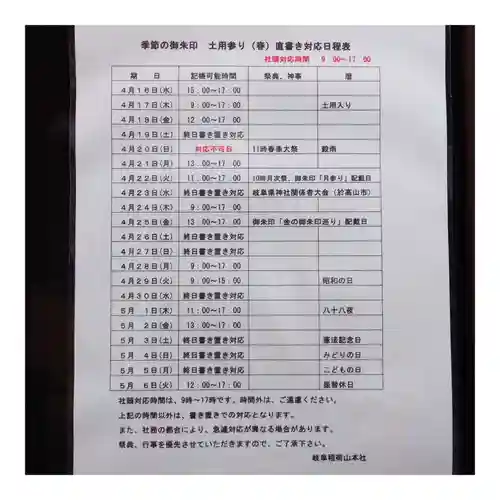 季節の御朱印　土用参り（春）直書き対応日程表
社頭対応時間　9：00〜17：00
期　日　記帳可能時間　祭典、神事　暦
4月16日(水)　15：00〜17：00
4月17日(木)　9：00〜17：00　土用入り
4月18日(金)　12：00〜17：00
4月19日(土)　終日書き置き対応
4月20日(日)　対応不可日　11時春季大祭　穀雨
4月21日(月)　13：00〜17：00
4月22日(火)　11：00〜17：00　10時月次祭、御朱印「月参り」配載日
4月23日(水)　終日書き置き対応　岐阜県神社関係者大会（於高山市）
4月24日(木)　9：00〜17：00
4月25日(金)　13：00〜17：00　御朱印「金の御朱印巡り」配載日
4月26日(土)　終日書き置き対応
4月27日(日)　終日書き置き対応
4月28日(月)　9：00〜17：00
4月29日(火)　9：00〜15：00　昭和の日
4月30日(水)　終日書き置き対応
5月　1日(木)　11：00〜17：00　八十八夜
5月　2日(金)　13：00〜17：00
5月　3日(土)　終日書き置き対応　憲法記念日
5月　4日(日)　終日書き置き対応　みどりの日
5月　5日(月)　終日書き置き対応　こどもの日
5月　6日(火)　12：00〜17：00　振替休日
社頭対応時間は、9時〜17時です。時間外は、ご遠慮ください。
上記の時間以外は、書き置きでの対応となります。
また、社務の都合により、急遽対応が異なる場合があります。
祭典、行事を優先させていただきますので、ご了承下さい。
岐阜稲荷山本社